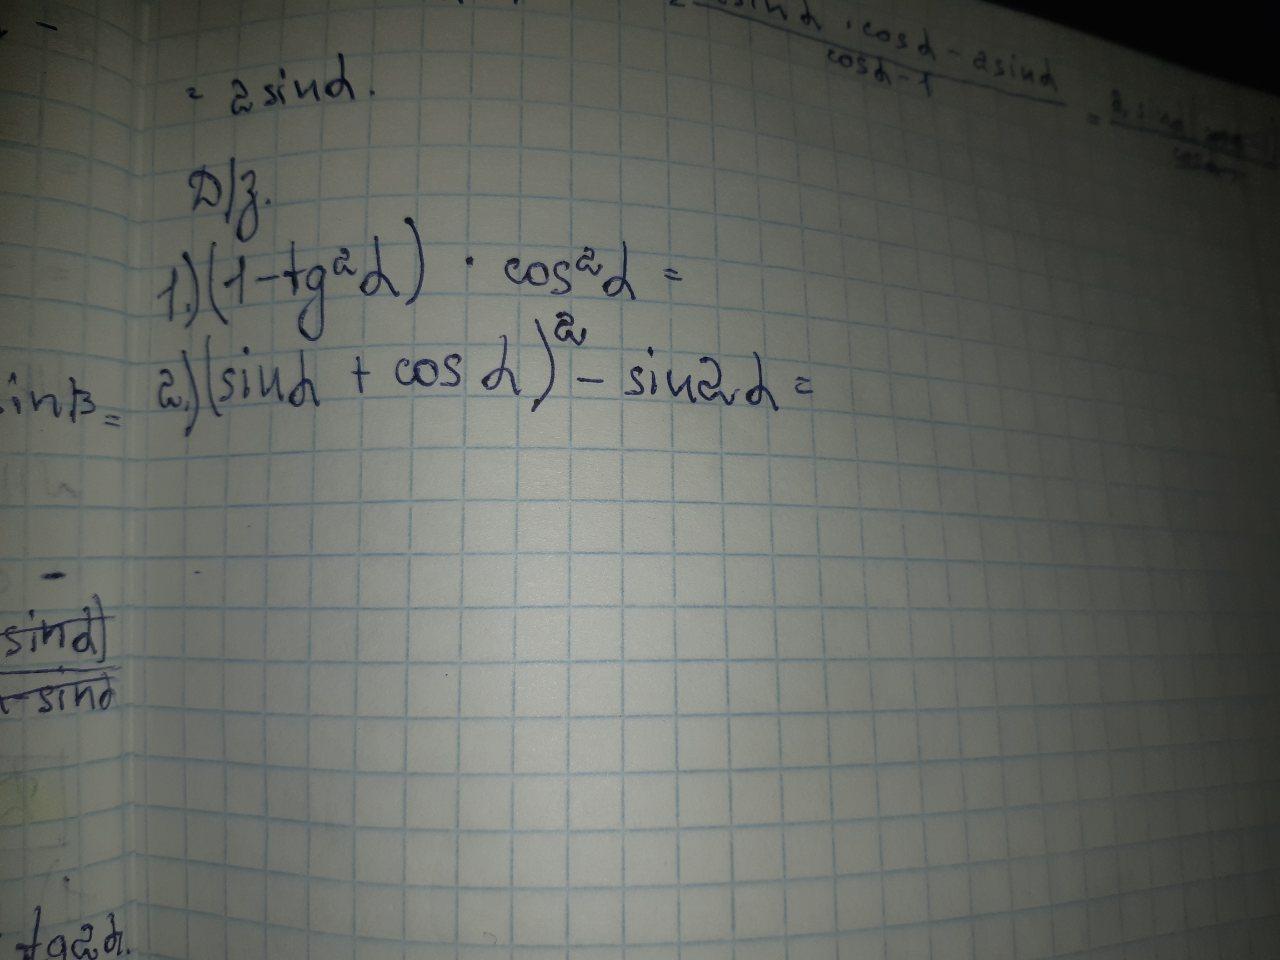 = 2 sin α.
sin α · cos α - 2 sin α
cos α - 1
=
Д/з.
1.) (1 - tg²α) · cos²α =
2.) (sin α + cos α)² - sin 2α =
sin β =
sin α)
- sin α
tg 2α.